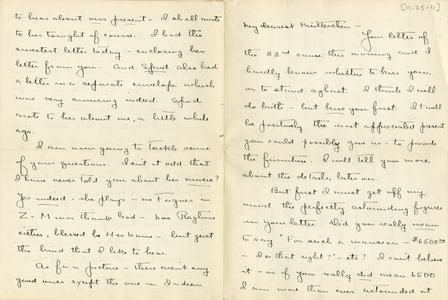 to hear about our present - I shall write
to her tonight of course. I had the
sweetest letter today - enclosing her
letter from you. And Sfud also had
a letter in a separate envelope which
was very amusing indeed. Sfud
wrote to her about me, a little while
ago.
I am now going to tackle some
of your questions. Isn't it odd that
I have never told you about her music?
Yes indeed - she plays - no Fugues in
Z-Minor thank God - nor Ragtime
either, blessed be His Name - but just
the kind that I like to hear.
As for a picture - there aren't any
good ones except the one in Indian
[11-25-11]
My dearest Mütterchen -
Your letter of
the 23rd came this morning and I
hardly know whether to kiss you,
or to stand aghast. I think I will
do both - but kiss you first. It will
be positively the most appreciated present
you could possibly give us - to provide
the furniture. I will tell you more
about the details, later on.
But first I must get off my
mind the perfectly astounding figures
in your letter. Did you really mean
to say "For such a mansion - $6500
- Is that right?" - etc? I can't believe
it - or if you really did mean 6500
I am more than ever astounded at